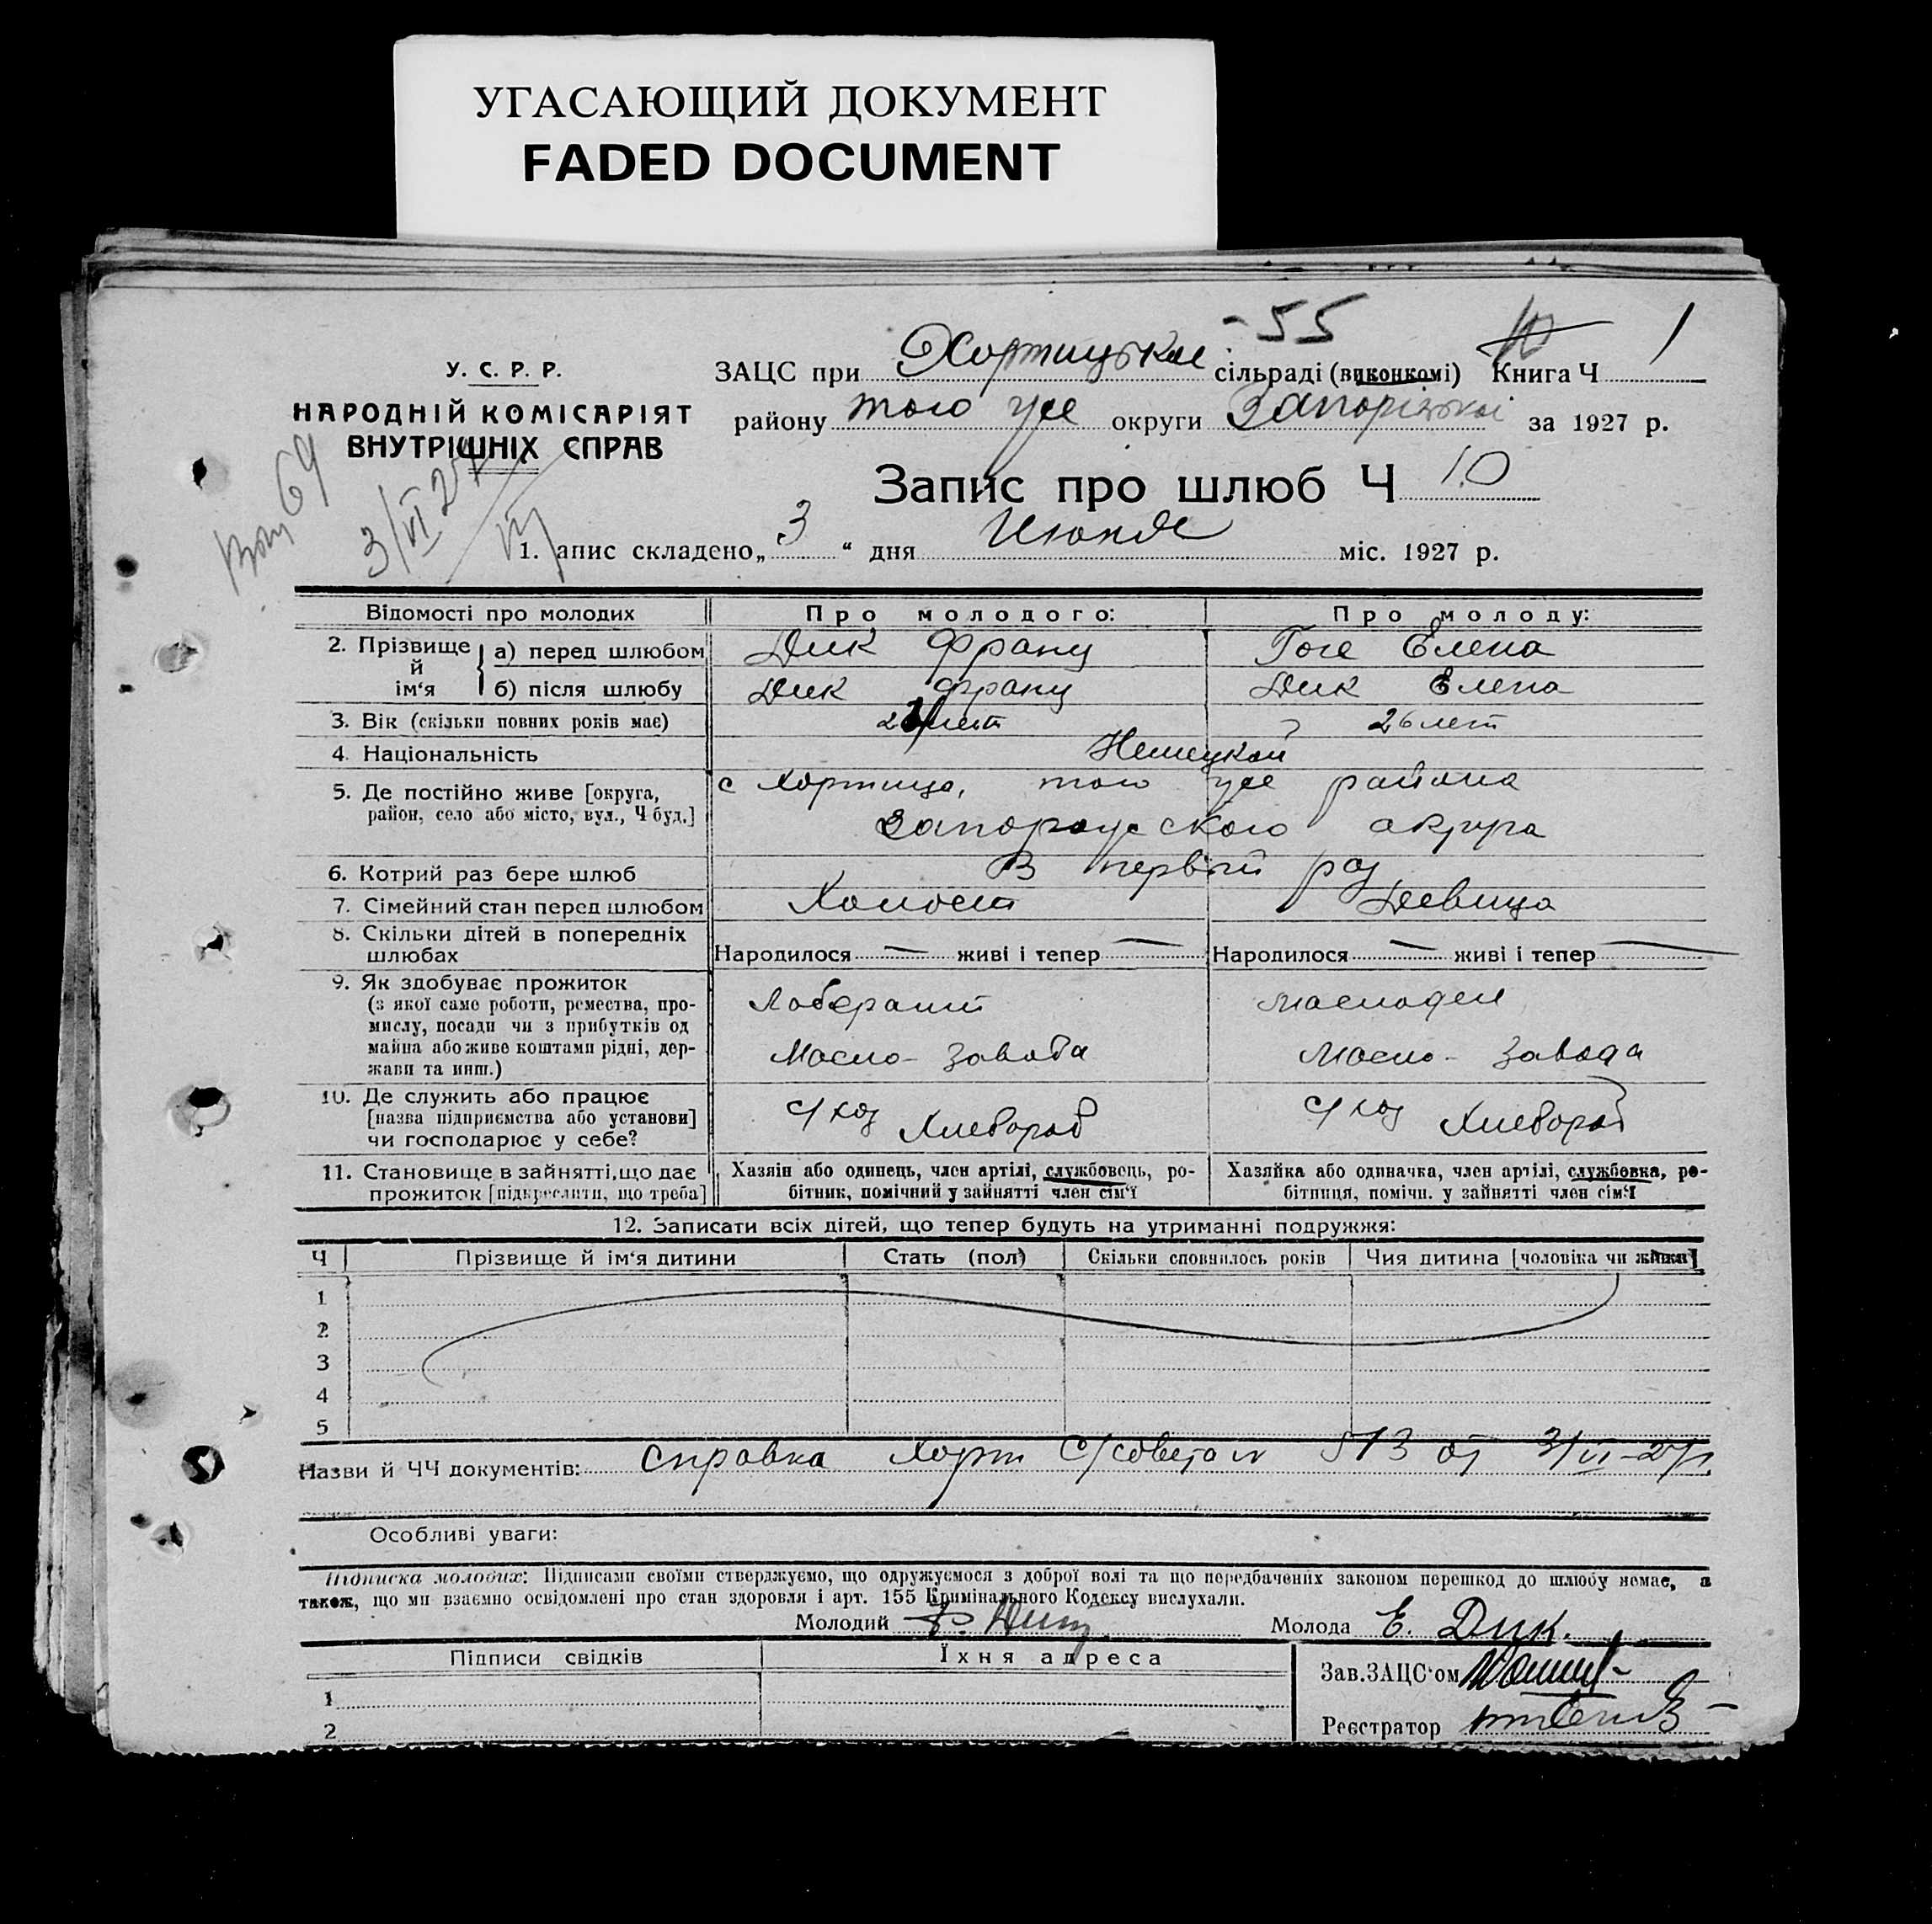 УГАСАЮЩИЙ ДОКУМЕНТ
FADED DOCUMENT
-55
У. С. Р. Р.
НАРОДНІЙ КОМІСАРІЯТ
ВНУТРІШНІХ СПРАВ
69
3/VI 27
ЗАЦС при Хортицькій сільраді (виконкомі) Книга Ч 1
району того же округи Запорізької за 1927 р.
Запис про шлюб Ч 10
1. апис складено „ 3 “ дня Июня міс. 1927 р.
Відомості про молодих Про молодого: Про молоду:
2. Прізвище й ім‘я а) перед шлюбом Дик Франц Гоге Елена
б) після шлюбу Дик Франц Дик Елена
3. Вік (скільки повних років має) лет 26 лет
4. Національність Немецкой
5. Де постійно живе [округа, район, село або місто, вул., Ч буд.] с Хортица, того же района
Запорожского округа
6. Котрий раз бере шлюб В первый раз
7. Сімейний стан перед шлюбом Холост Девица
8. Скільки дітей в попередніх шлюбах Народилося — живі і тепер — Народилося — живі і тепер —
9. Як здобуває прожиток
(з якої саме роботи, ремества, про-
мислу, посади чи з прибутків од
майна або живе коштами рідні, дер-
жави та инш.)
Лаборант
Масло- Завода
Маслодел
Масло- Завода
10. Де служить або працює
[назва підприємства або установи]
чи господарює у себе?
с/хоз
с/хоз
11. Становище в зайнятті, що дає
прожиток [підкреслити, що треба]
Хазяін або одинець, член артілі, службовець, ро-
бітник, помічний у зайнятті член сім‘ї
Хазяйка або одиначка, член артілі, службовка, ро-
бітниця, помічн. у зайнятті член сім‘ї
12. Записати всіх дітей, що тепер будуть на утриманні подружжя:
Ч Прізвище й ім‘я дитини Стать (пол) Скільки сповнилось років Чия дитина [чоловіка чи жінки]
1
2
3
4
5
Назви й ЧЧ документів: справка Хорт С/совета № 573 от 3/VI-27г
Особливі уваги:
Підписка молодих: Підписами своїми стверджуємо, що одружуємося з доброї волі та що передбачених законом перешкод до шлюбу немає, а
також, що ми взаємно освідомлені про стан здоровля і арт. 155 Кримінального Кодексу вислухали.
Молодий Молода Е. Дик.
Підписи свідків Їхня адреса
Зав. ЗАЦС‘ом
1
Реєстратор
2